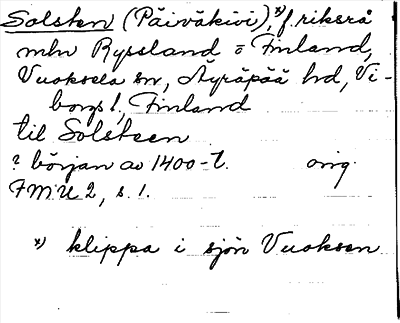 Solsten (Päiväkivi),*) f. riksrå
mln Ryssland o Finland,
Vuoksela sn, Äyräpää hd, Vi-
borgs l, Finland
til Solsteen
? början av 1400-t. orig.
FMU 2, s. 1.
*) klippa i sjön Vuoksen